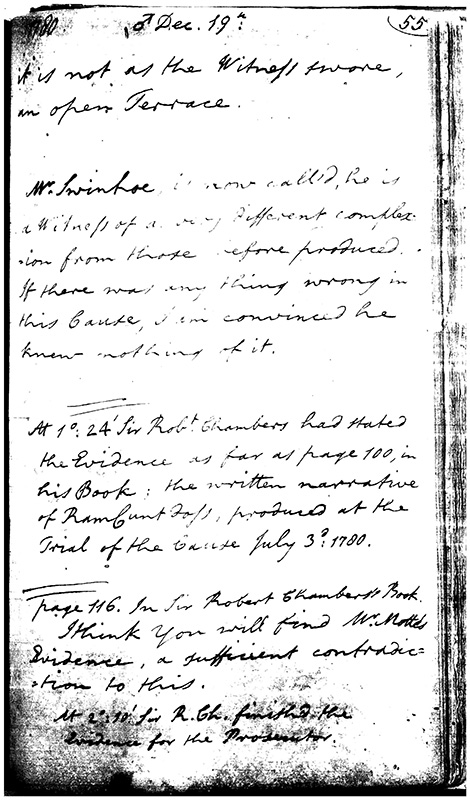 1780 ♂ Dec. 19th. 55
it is not as the Witness swore,
an open Terrace.
Mr. Swinhoe, is now called, he is
a Witness of a very different complex-
-ion from those before produced.
If there was any thing wrong in
this Cause, I am convinced he
knew nothing of it.
At 1h: 24' Sir Robt. Chambers had stated
the Evidence as far as page 100, in
his Book; the written narrative
of RamCunt Doss, produced at the
Trial of the Cause July 3d: 1780.
page 116. In Sir Robert Chambers's Book.
I think You will find Mr. Motte's
Evidence, a sufficient contradic-
-tion to this.
At 2h: 10' Sir R. Ch. finished the
Evidence for the Prosecutor.